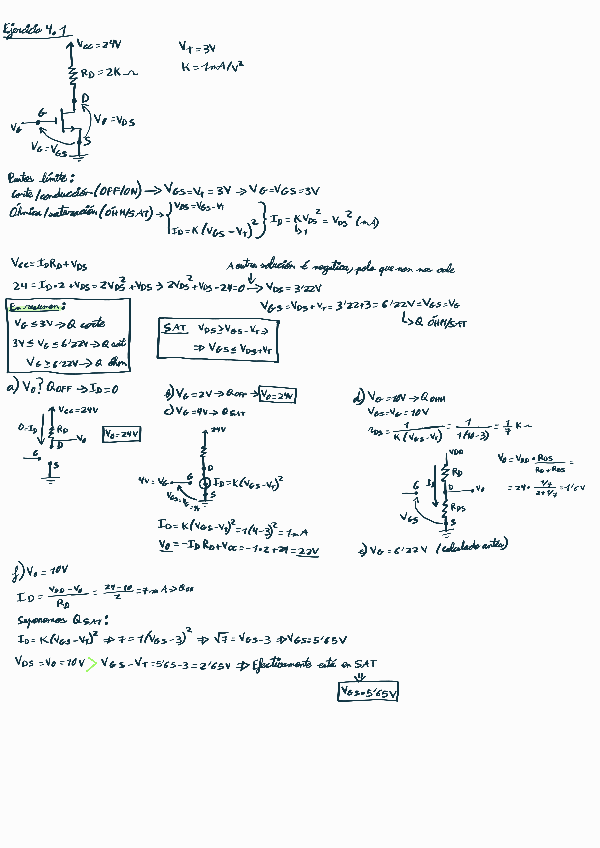 Ejercicio 4.1
Vcc=24V
VT=3V
RD=2K Ω
K=1mA/V²
D
G
VG
Vo=VDS
S
VG=VGS
Puntos límite:
Corte/conducción (OFF/ON) → VGS=VT=3V → VG=VGS=3V
Óhmica/saturación (ÓHM/SAT) → { VDS=VGS-VT
ID=K(VGS-VT)² } ID=KVDS²=VDS² (mA)
↳1
Vcc=IDRD+VDS
A outra solución é negativa, polo que non nos vale
24=ID·2+VDS=2VDS²+VDS → 2VDS²+VDS-24=0 → VDS=3'22V
VGS=VDS+VT=3'22+3=6'22V=VGS=VG
↳Q ÓHM/SAT
En resumen:
VG≤3V→Q corte
3V≤VG≤6'22V→Q sat
VG≥6'22V→Q ohm
SAT VDS≥VGS-VT→
⇒VGS≤VDS+VT
a) Vo? Q OFF → ID=0
Vcc=24V
0=ID
RD
D
Vo
G
S
Vo=24V
b) VG=2V→Q OFF→ Vo=24V
c) VG=4V→Q SAT
24V
D
4V=VG
G
ID=K(VGS-VT)²
S
ID=K(VGS-VT)²=1(4-3)²=1mA
Vo=-IDRD+Vcc=-1·2+24=22V
d) VG=10V→Q OHM
VGS=VG=10V
rDS=1/K(VGS-VT)=1/1(10-3)=1/7 K Ω
VDD
RD
ID
G
D
Vo
RDS
VGS
S
Vo=VDD·RDS/RD+RDS=
=24·1/7/2+1/7=1'6V
e) VG=6'22V (calculado antes)
f) Vo=10V
ID=VDD-Vo/RD=24-10/2=7mA→Q ON
Suponemos Q SAT:
ID=K(VGS-VT)² ⇒ 7=1(VGS-3)² ⇒ √7=VGS-3 ⇒ VGS=5'65V
VDS=Vo=10V > VGS-VT=5'65-3=2'65V ⇒ Efectivamente está en SAT
⇓
VGS=5'65V